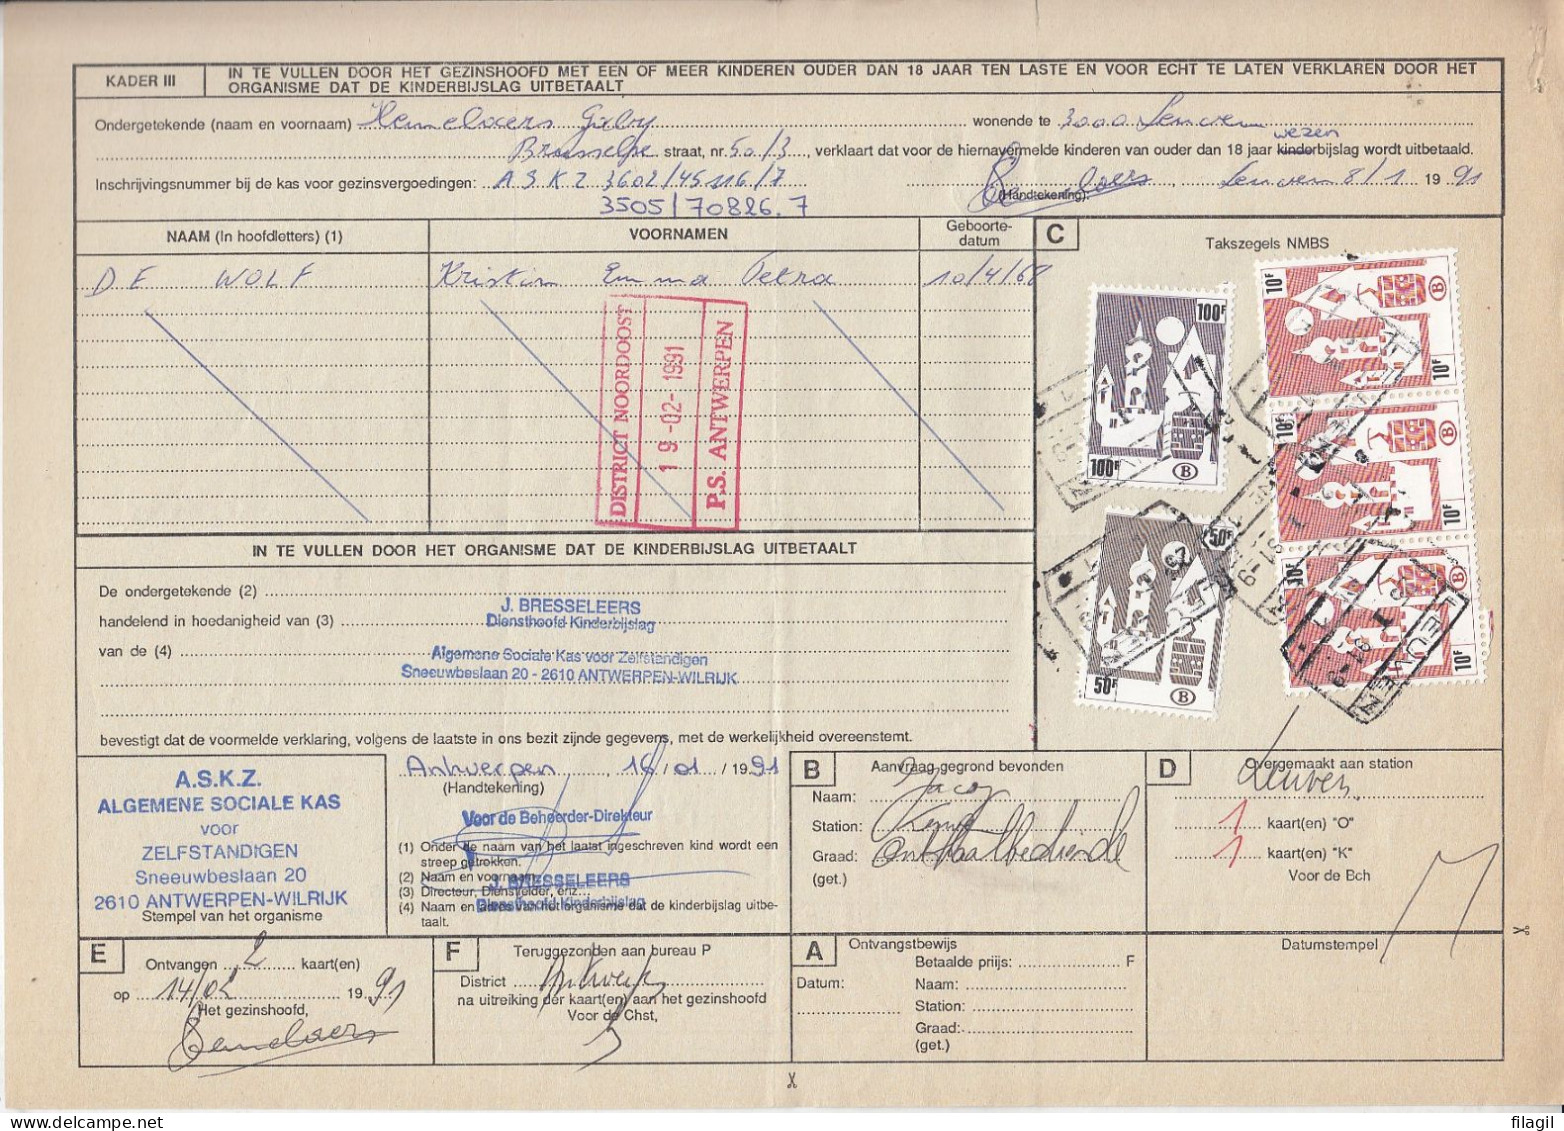 KADER III
IN TE VULLEN DOOR HET GEZINSHOOFD MET EEN OF MEER KINDEREN OUDER DAN 18 JAAR TEN LASTE EN VOOR ECHT TE LATEN VERKLAREN DOOR HET
ORGANISME DAT DE KINDERBIJSLAG UITBETAALT
Ondergetekende (naam en voornaam) wonende te 3000 Leuven
straat, nr. 50/3, verklaart dat voor de hiernavermelde kinderen van ouder dan 18 jaar wezen kinderbijslag wordt uitbetaald.
Inschrijvingsnummer bij de kas voor gezinsvergoedingen: ASKZ 3602/45116/7 (Handtekening). Leuven 8/1 1991
3505/70826.7
NAAM (In hoofdletters) (1) VOORNAMEN Geboorte-
datum
C
Takszegels NMBS
DE WOLF Kristin Emma Petra 10/4/68
DISTRICT NOORDOOST
19-02-1991
P.S. ANTWERPEN
100F
100F
B
50F
50F
B
10F
10F
B
10F
10F
B
10F
10F
B
LEUVEN
IN TE VULLEN DOOR HET ORGANISME DAT DE KINDERBIJSLAG UITBETAALT
De ondergetekende (2)
handelend in hoedanigheid van (3)
van de (4)
J. BRESSELEERS
Diensthoofd Kinderbijslag
Algemene Sociale Kas voor Zelfstandigen
Sneeuwbeslaan 20 - 2610 ANTWERPEN-WILRIJK
bevestigt dat de voormelde verklaring, volgens de laatste in ons bezit zijnde gegevens, met de werkelijkheid overeenstemt.
A.S.K.Z.
ALGEMENE SOCIALE KAS
voor
ZELFSTANDIGEN
Sneeuwbeslaan 20
2610 ANTWERPEN-WILRIJK
Stempel van het organisme
Antwerpen, 16/01/1991
(Handtekening)
Voor de Beheerder-Direkteur
(1) Onder de naam van het laatst ingeschreven kind wordt een
streep getrokken.
(2) Naam en voornaam.
(3) Directeur, Dienstleider, enz...
(4) Naam en adres van het organisme dat de kinderbijslag uitbe-
taalt.
J. BRESSELEERS
Diensthoofd Kinderbijslag
B
Aanvraag gegrond bevonden
Naam:
Station:
Graad:
(get.)
D
Overgemaakt aan station
Leuven
1 kaart(en) "O"
1 kaart(en) "K"
Voor de Bch
Datumstempel
E
Ontvangen 2 kaart(en)
op 14/02 1991
Het gezinshoofd,
F
Teruggezonden aan bureau P
District
na uitreiking der kaart(en) aan het gezinshoofd
Voor de Chst,
A
Ontvangstbewijs
Betaalde prijs: F
Datum:
Naam:
Station:
Graad:
(get.)
filagil